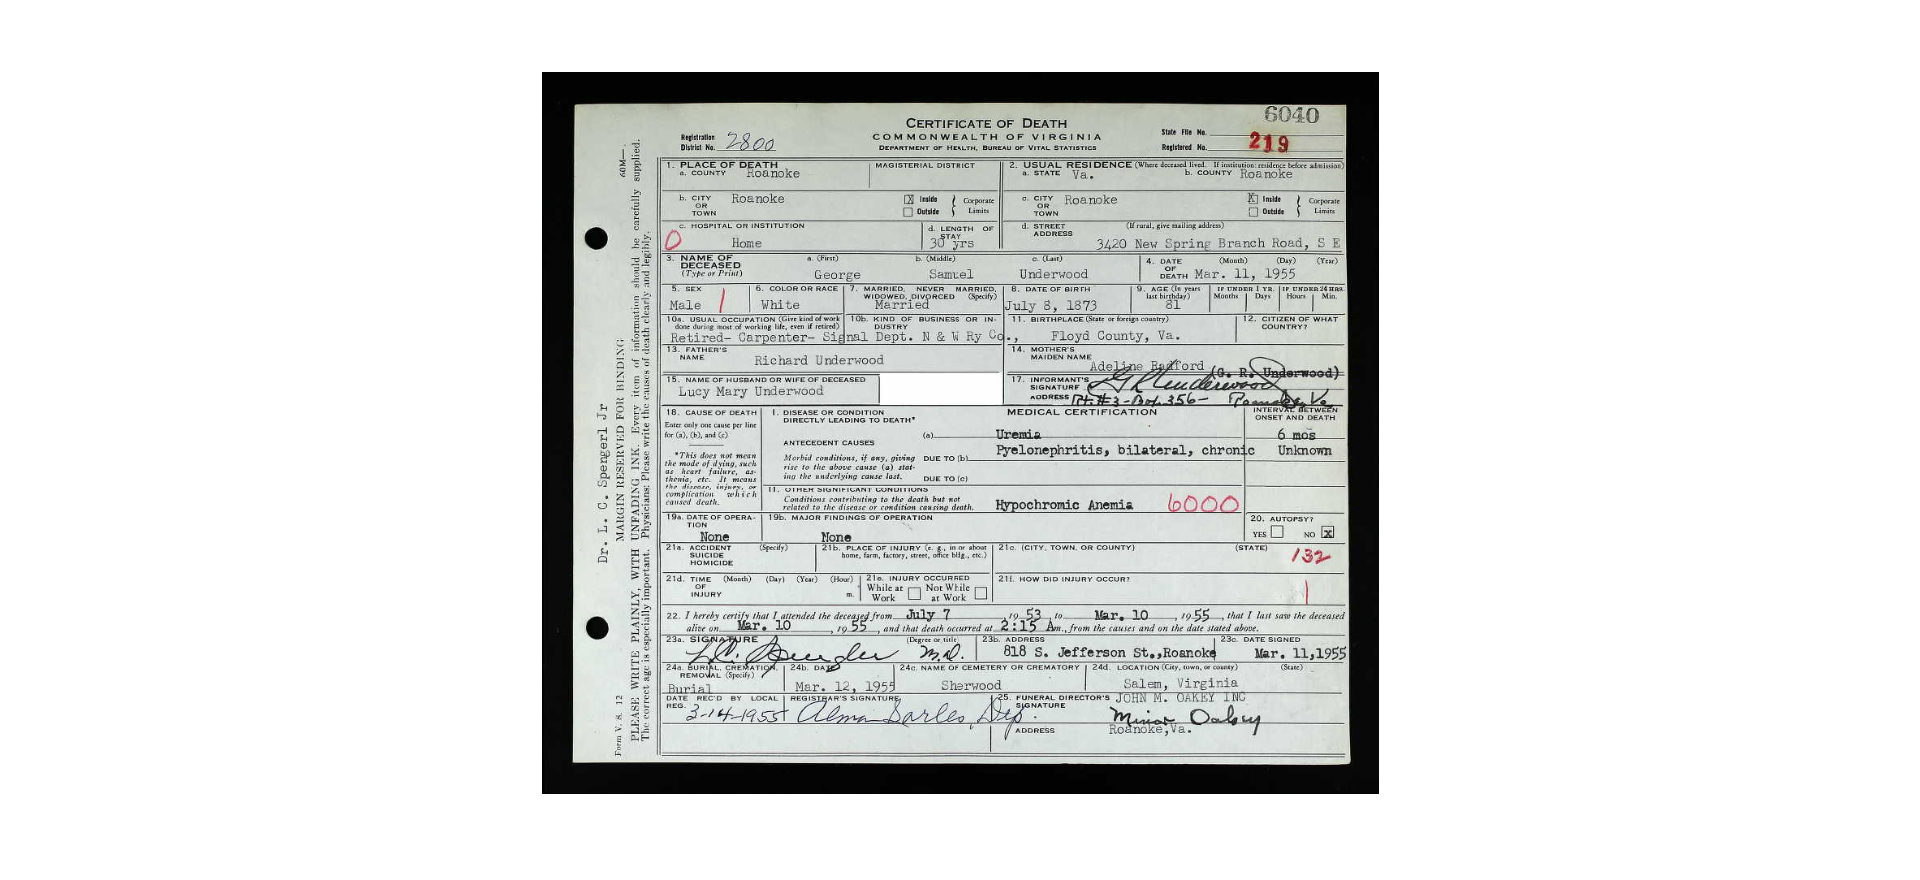 6040
CERTIFICATE OF DEATH
COMMONWEALTH OF VIRGINIA
DEPARTMENT OF HEALTH, BUREAU OF VITAL STATISTICS
Registration District No. 2800
State File No.
Registered No. 219
1. PLACE OF DEATH
a. COUNTY Roanoke
MAGISTERIAL DISTRICT
2. USUAL RESIDENCE (Where deceased lived. If institution: residence before admission)
a. STATE Va. b. COUNTY Roanoke
b. CITY OR TOWN Roanoke
X Inside Outside Corporate Limits
c. CITY OR TOWN Roanoke
X Inside Outside Corporate Limits
c. HOSPITAL OR INSTITUTION
0 Home
d. LENGTH OF STAY
30 yrs
d. STREET ADDRESS (If rural, give mailing address)
3420 New Spring Branch Road, S E
3. NAME OF DECEASED (Type or Print)
a. (First) b. (Middle) c. (Last)
George Samuel Underwood
4. DATE OF DEATH (Month) (Day) (Year)
Mar. 11, 1955
5. SEX
Male 1
6. COLOR OR RACE
White
7. MARRIED, NEVER MARRIED, WIDOWED, DIVORCED (Specify)
Married
8. DATE OF BIRTH
July 8, 1873
9. AGE (In years last birthday)
81
IF UNDER 1 YR. Months Days
IF UNDER 24 HRS. Hours Min.
10a. USUAL OCCUPATION (Give kind of work done during most of working life, even if retired)
10b. KIND OF BUSINESS OR INDUSTRY
Retired- Carpenter- Signal Dept. N & W Ry Co.,
11. BIRTHPLACE (State or foreign country)
Floyd County, Va.
12. CITIZEN OF WHAT COUNTRY?
13. FATHER'S NAME
Richard Underwood
14. MOTHER'S MAIDEN NAME
Adeline Radford
15. NAME OF HUSBAND OR WIFE OF DECEASED
Lucy Mary Underwood
17. INFORMANT'S SIGNATURE G R Underwood (G. R. Underwood)
ADDRESS Rt. #3-Box 356- Roanoke, Va
18. CAUSE OF DEATH
Enter only one cause per line for (a), (b), and (c)
*This does not mean the mode of dying, such as heart failure, asthenia, etc. It means the disease, injury, or complication which caused death.
MEDICAL CERTIFICATION
INTERVAL BETWEEN ONSET AND DEATH
I. DISEASE OR CONDITION DIRECTLY LEADING TO DEATH*
(a) Uremia 6 mos
ANTECEDENT CAUSES
Morbid conditions, if any, giving rise to the above cause (a) stating the underlying cause last.
DUE TO (b) Pyelonephritis, bilateral, chronic Unknown
DUE TO (c)
II. OTHER SIGNIFICANT CONDITIONS
Conditions contributing to the death but not related to the disease or condition causing death.
Hypochromic Anemia 6000
19a. DATE OF OPERATION
None
19b. MAJOR FINDINGS OF OPERATION
None
20. AUTOPSY?
YES NO X
21a. ACCIDENT SUICIDE HOMICIDE (Specify)
21b. PLACE OF INJURY (e. g., in or about home, farm, factory, street, office bldg., etc.)
21c. (CITY, TOWN, OR COUNTY) (STATE)
132
21d. TIME OF INJURY (Month) (Day) (Year) (Hour) m.
21e. INJURY OCCURRED
While at Work Not While at Work
21f. HOW DID INJURY OCCUR?
1
22. I hereby certify that I attended the deceased from July 7, 1953 to Mar. 10, 1955, that I last saw the deceased
alive on Mar. 10, 1955, and that death occurred at 2:15 A m., from the causes and on the date stated above.
23a. SIGNATURE (Degree or title)
M.D.
23b. ADDRESS
818 S. Jefferson St.,Roanoke
23c. DATE SIGNED
Mar. 11,1955
24a. BURIAL, CREMATION, REMOVAL (Specify)
Burial
24b. DATE
Mar. 12, 1955
24c. NAME OF CEMETERY OR CREMATORY
Sherwood
24d. LOCATION (City, town, or county) (State)
Salem, Virginia
DATE REC'D BY LOCAL REG.
3-14-1955
REGISTRAR'S SIGNATURE
Alma Sarles, Dep.
25. FUNERAL DIRECTOR'S SIGNATURE
JOHN M. OAKEY INC
Minor Oakey
ADDRESS Roanoke,Va.
Dr. L. C. Spengerl Jr
Form V. S. 12 MARGIN RESERVED FOR BINDING 60M—.
PLEASE WRITE PLAINLY, WITH UNFADING INK. Every item of information should be carefully supplied.
The correct age is especially important. Physicians: Please write the causes of death clearly and legibly.